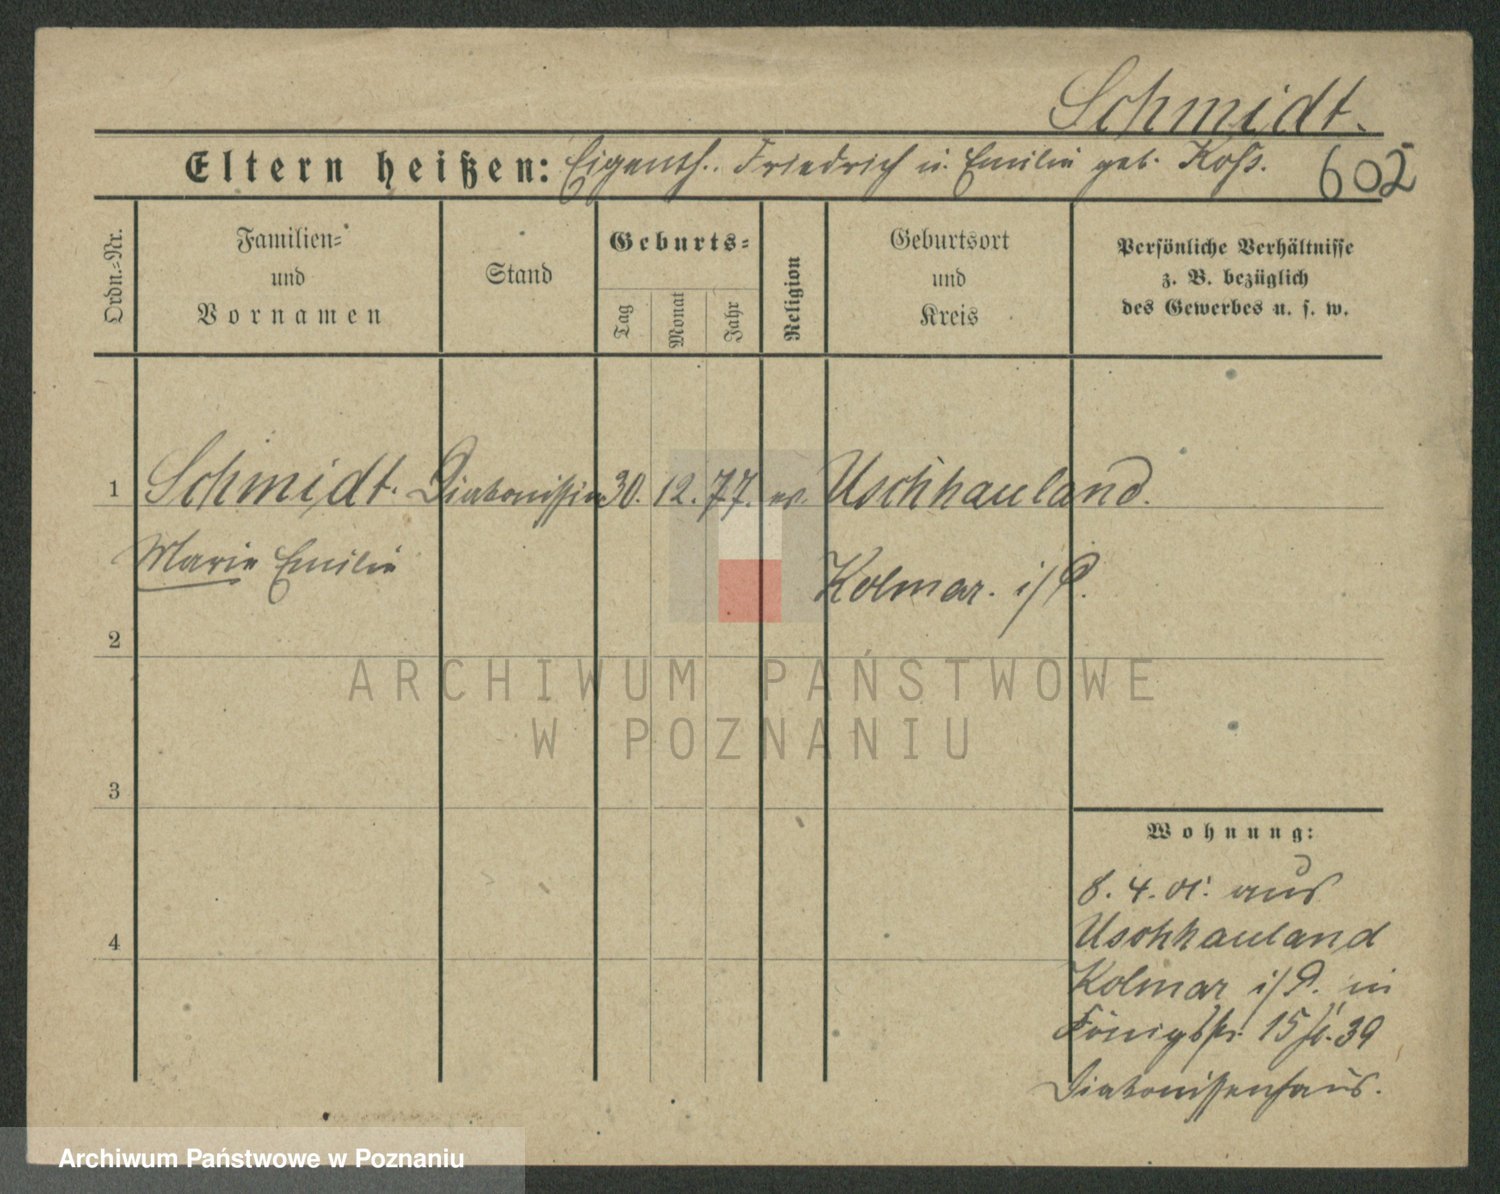 Schmidt.
Eltern heißen: Eigenth. Friedrich u. Emilie geb. Koss. 602
Ordn.-Nr.
Familien-
und
Vornamen
Stand
Geburts-
Tag
Monat
Jahr
Religion
Geburtsort
und
Kreis
Persönliche Verhältnisse
z. B. bezüglich
des Gewerbes u. s. w.
1 Schmidt. Diakonissin 30. 12. 77. ev. Uschhauland.
Marie Emilie Kolmar. i/P.
2
ARCHIWUM PAŃSTWOWE
W POZNANIU
3
Wohnung:
8. 4. 01. aus
4 Uschhauland
Kolmar i/P. in
15 39
Diakonissenhaus.
Archiwum Państwowe w Poznaniu